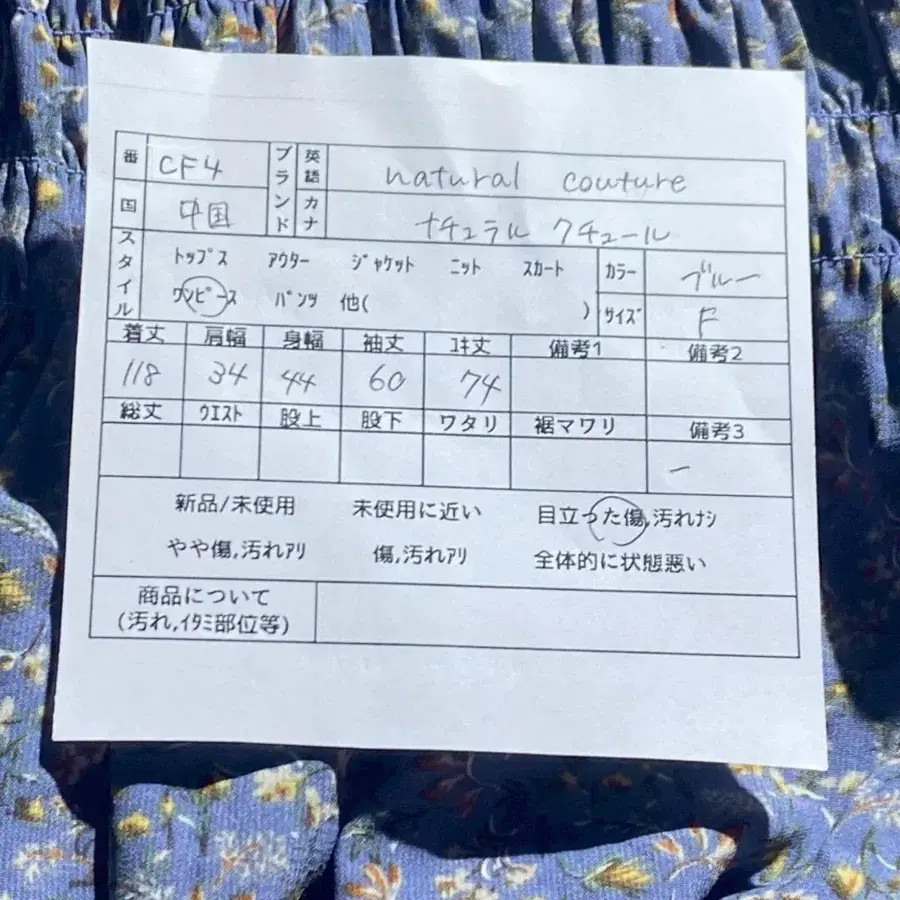 番 CF4 ブランド 英語 natural couture
国 中国 カナ ナチュラル クチュール
スタイル トップス アウター ジャケット ニット スカート カラー ブルー
ワンピース パンツ 他( ) サイズ F
着丈 肩幅 身幅 袖丈 ユキ丈 備考1 備考2
118 34 44 60 74
総丈 ウエスト 股上 股下 ワタリ 裾マワリ 備考3
ー
新品/未使用 未使用に近い 目立った傷,汚れナシ
やや傷,汚れアリ 傷,汚れアリ 全体的に状態悪い
商品について
(汚れ,イタミ部位等)